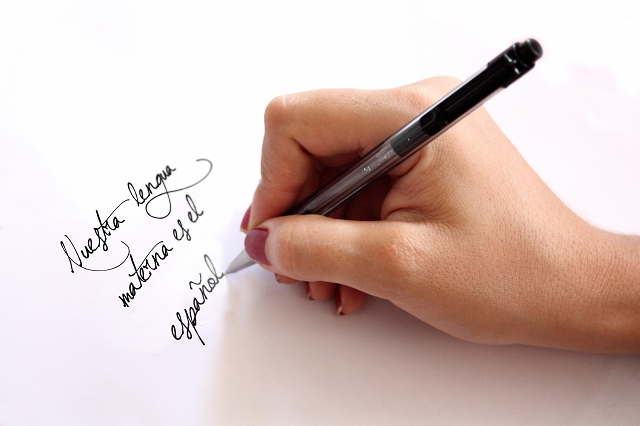 Nuestra lengua
materna es el
español